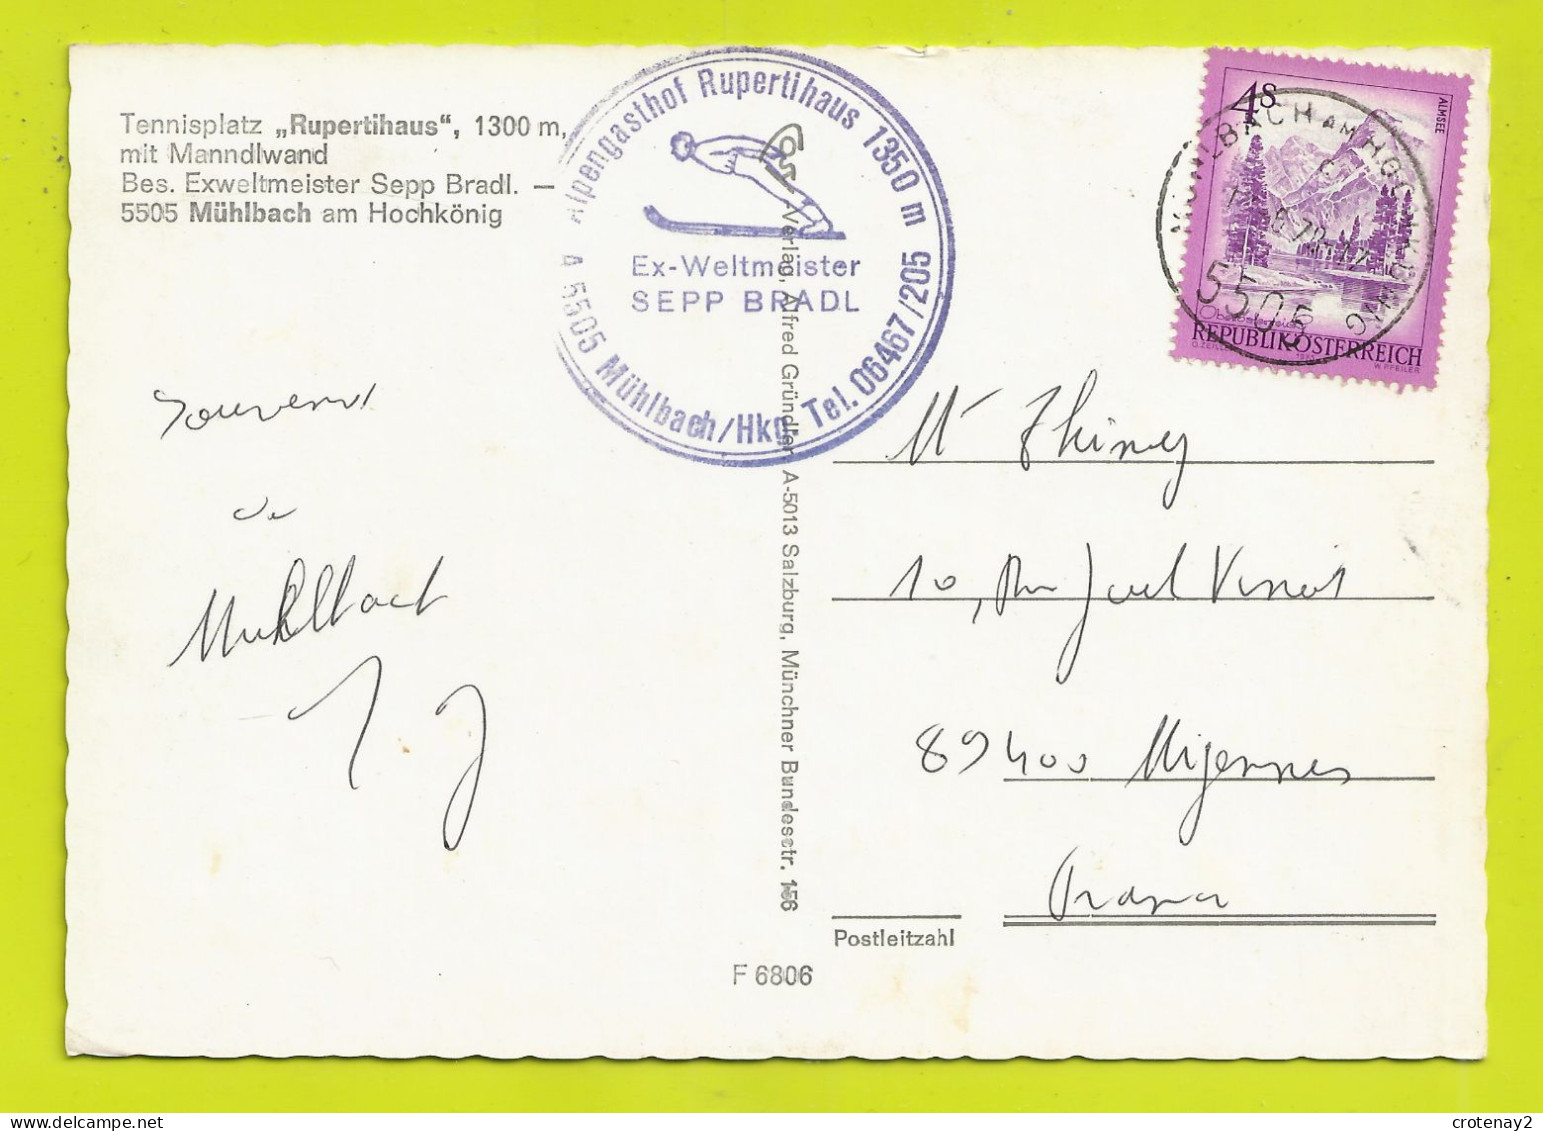 Tennisplatz „Rupertihaus“, 1300 m,
mit Manndlwand
Bes. Exweltmeister Sepp Bradl. —
5505 Mühlbach am Hochkönig
Alpengasthof Rupertihaus 1350 m
Ex-Weltmeister
SEPP BRADL
A 5505 Mühlbach/Hkg. Tel. 06467/205
4S
ALMSEE
Oberösterreich
REPUBLIK ÖSTERREICH
W. PFEILER
MÜHLBACH AM HOCHKÖNIG
5505
Souvenir
de
Muhlbach
Verlag, Alfred Gründler, A-5013 Salzburg, Münchner Bundesstr. 156
Mr Thiney
10, Rue
89400 Migennes
France
Postleitzahl
F 6806
crotenay2